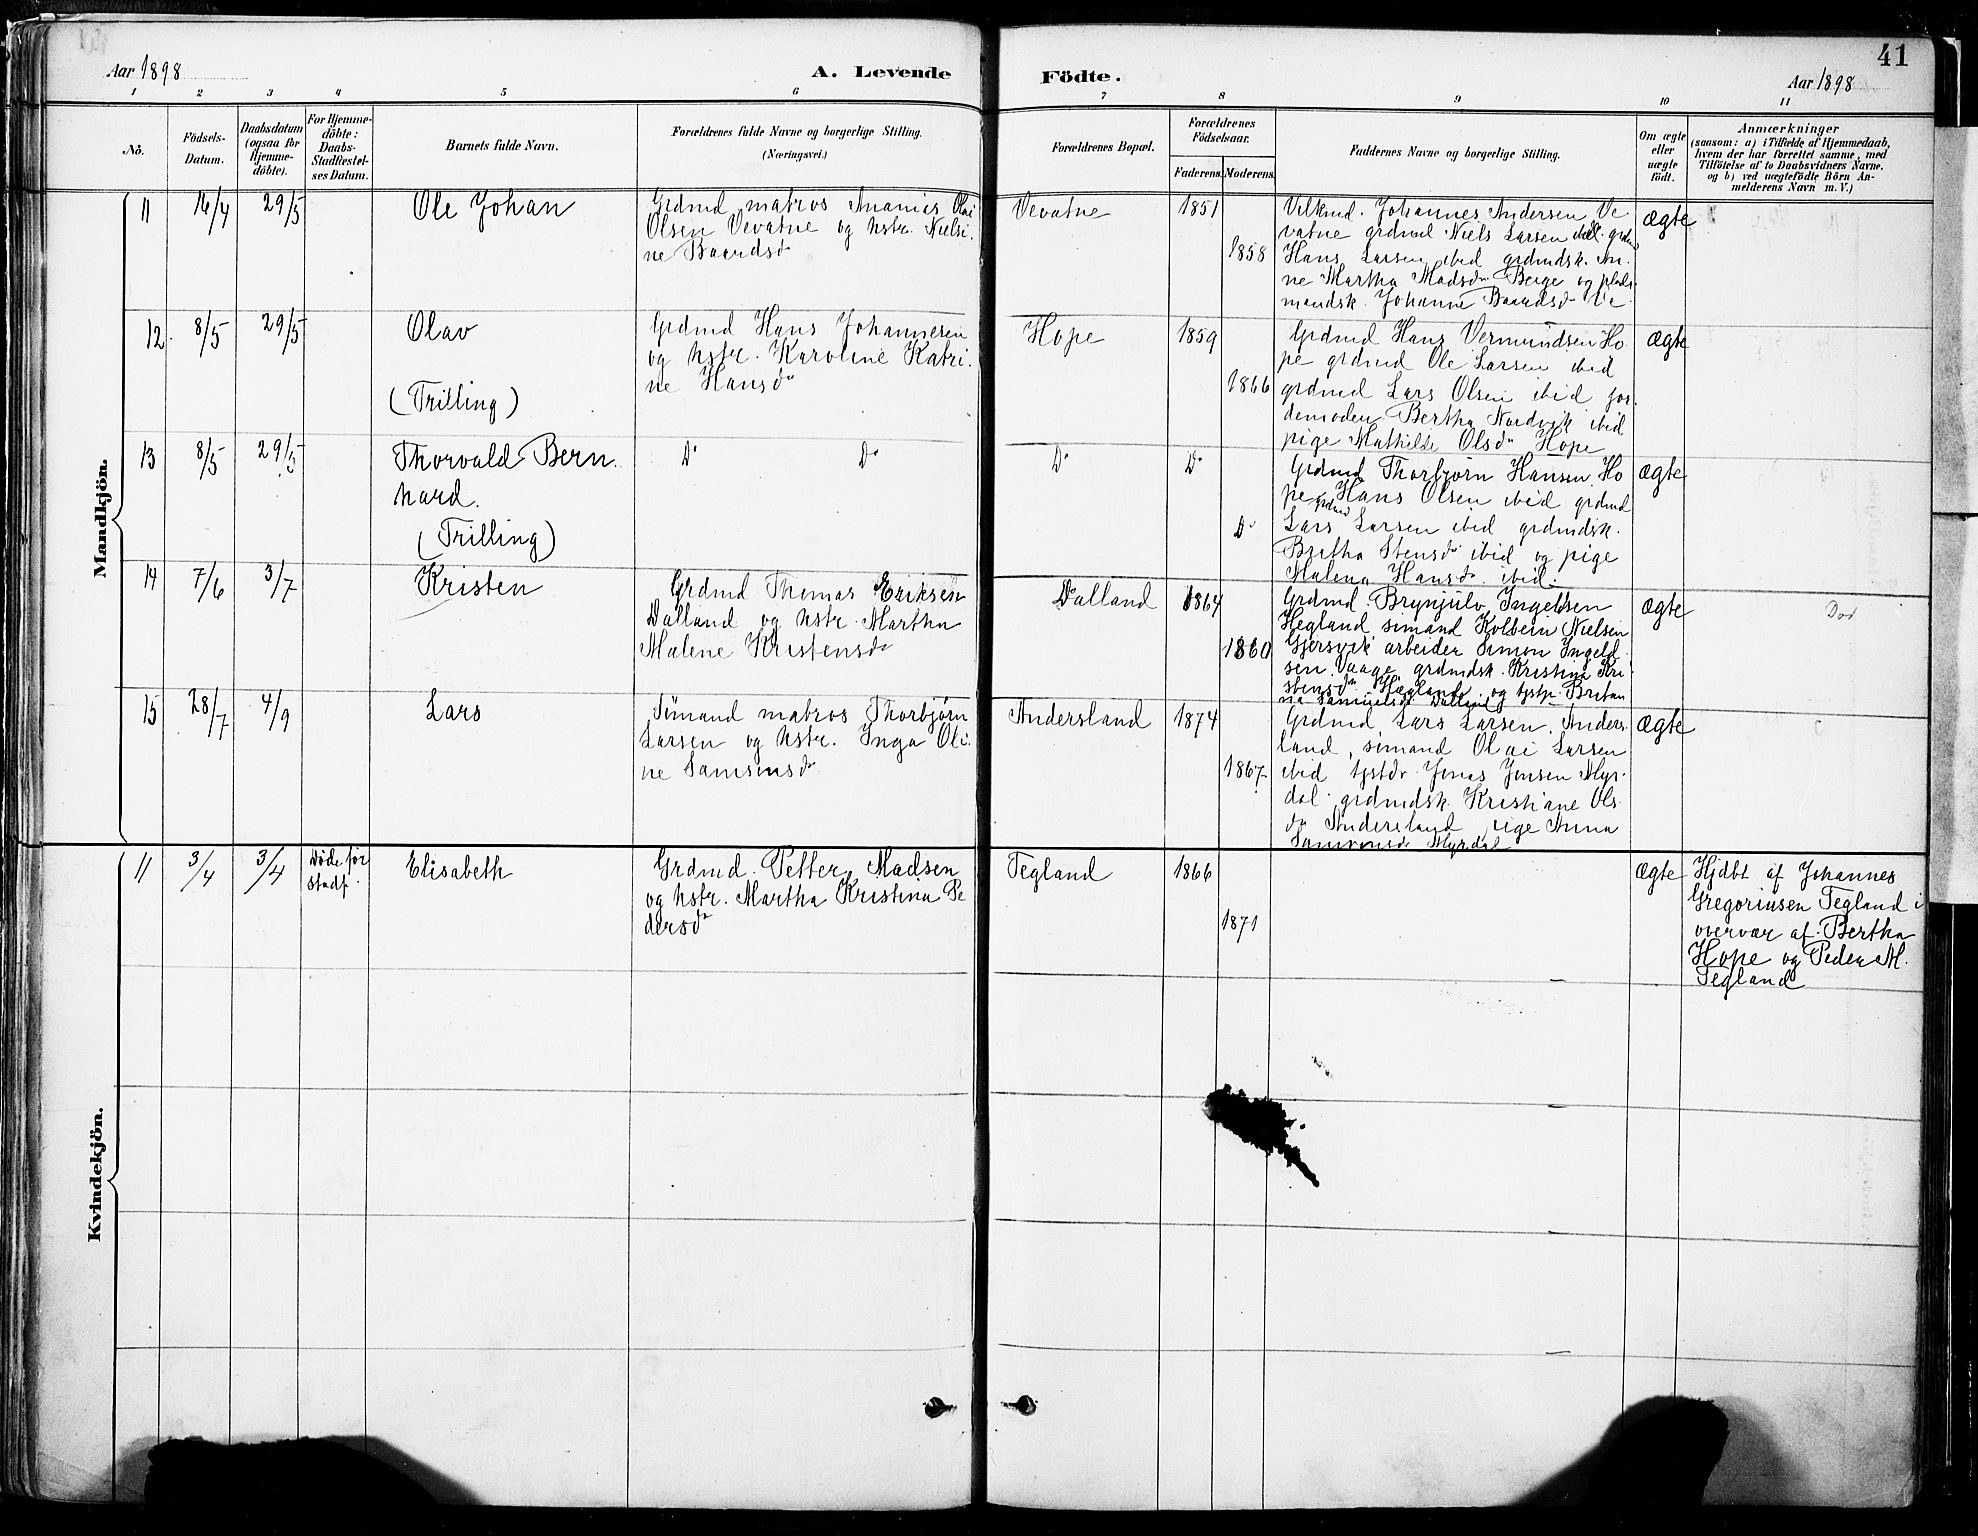 41
Aar 1898
A. Levende
Födte.
Aar 1898
1 2 3 4 5 6 7 8 9 10 11
No.
Födsels-
Datum.
Daabsdatum
(ogsaa for
Hjemme-
döbte).
For Hjemme-
döbte:
Daabs-
Stadfæstel-
ses Datum.
Barnets fulde Navn.
Forældrenes fulde Navne og borgerlige Stilling.
(Næringsvei.)
Forældrenes Bopæl.
Forældrenes
Födselsaar.
Faderens.
Moderens.
Faddernes Navne og borgerlige Stilling.
Om ægte
eller
uægte
födt.
Anmærkninger
(saasom: a) i Tilfælde af Hjemmedaab,
hvem der har forrettet samme, med
Tilföielse af to Daabsvidners Navne.
og b) ved uægtefödte Börn An-
melderens Navn m. V.)
Mandkjön.
11
16/4
29/5
Ole Johan
Grdmd matros Ananias Olai
Olsen Vevatne og hstr. Nielsi-
ne Baardsdr
Vevatne
1851
1858
Johannes Andersen Ve
vatne grdmd Niels Larsen ibid. grdmd
Hans Larsen ibid grdmdsk. An-
ne Martha Madsdr Berge og plads-
mandsk. Johanne Baardsdr Ve
ægte
12.
8/5
29/5
Olav
(Trilling)
Grdmd Hans Johannesen
og hstr. Karoline Katri-
ne Hansdr
Hope
1859
1866
Grdmd Hans Vermundsen Ho-
pe grdmd Ole Larsen ibid
grdmd Lars Olsen ibid jor-
demoder Bertha Nordvik ibid
pige Mathilde Olsdr Hope
ægte
13
8/5
29/5
Thorvald Bern-
hard.
(Trilling)
Do Do
Do
Do
Do
Grdmd Thorbjørn Hansen Ho
pe grdmd Hans Olsen ibid grdmd
Lars Larsen ibid grdmdsk.
Britha Stensdr ibid og pige
Malena Hansdr. ibid.
ægte
14
7/6
3/7
Kristen
Grdmd Thomas Eriksen
Dalland og hstr. Martha
Malene Kristensdr
Dalland
1864
1860
Grdmd. Brynjulv Ingeldsen
Hegland, sømand Kolbein Nielsen
Gjersvik arbeider Simon Ingeld-
sen Vaage grdmdsk. Kristina Kri-
stensdr Hegland og tjstp. Britan
na Samuelsdr Dalland
ægte
Død
15
28/7
4/9
Lars
Sømand matros Thorbjørn
Larsen og hstr. Inga Oli-
ne Samsonsdr
Andersland
1874
1867
Grdmd Lars Larsen Anders-
land, sømand Olai Larsen
ibid tjstdr Jonas Jonsen Myr-
dal grdmdsk. Kristiane Ols-
dr Andersland pige Anna
Samsonsdr Myrdal
ægte
Kvindekjön.
11
3/4
3/4
Døde før
stadf.
Elisabeth
Grdmd. Petter Madsen
og hstr. Martha Kristina Pe
dersdr
Tegland
1866
1871
ægte
Hjdbt af Johannes
Gregoriusen Tegland i
overvær af Bertha
Hope og Peder M.
Tegland